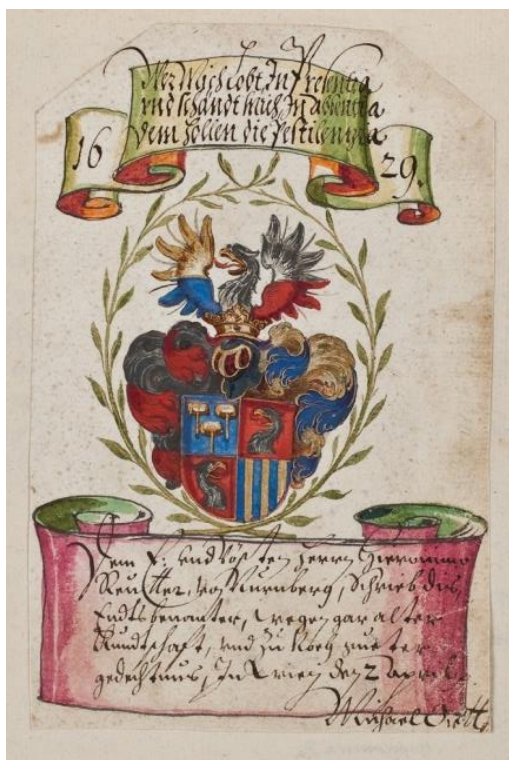 Wer Mich lobt In Presentia
vnd schandt mich In absentia
Dem sollen die Pestilentzia
16 29.
Dem E: vnd Vösten herrn Hieronimo
Reutter, von Nurnberg, schrieb dis
Endtsbenanter, wegen gar alter
Kundtschaft, vnd zu
gedechtnus, In Wien den 2 April.
Michael